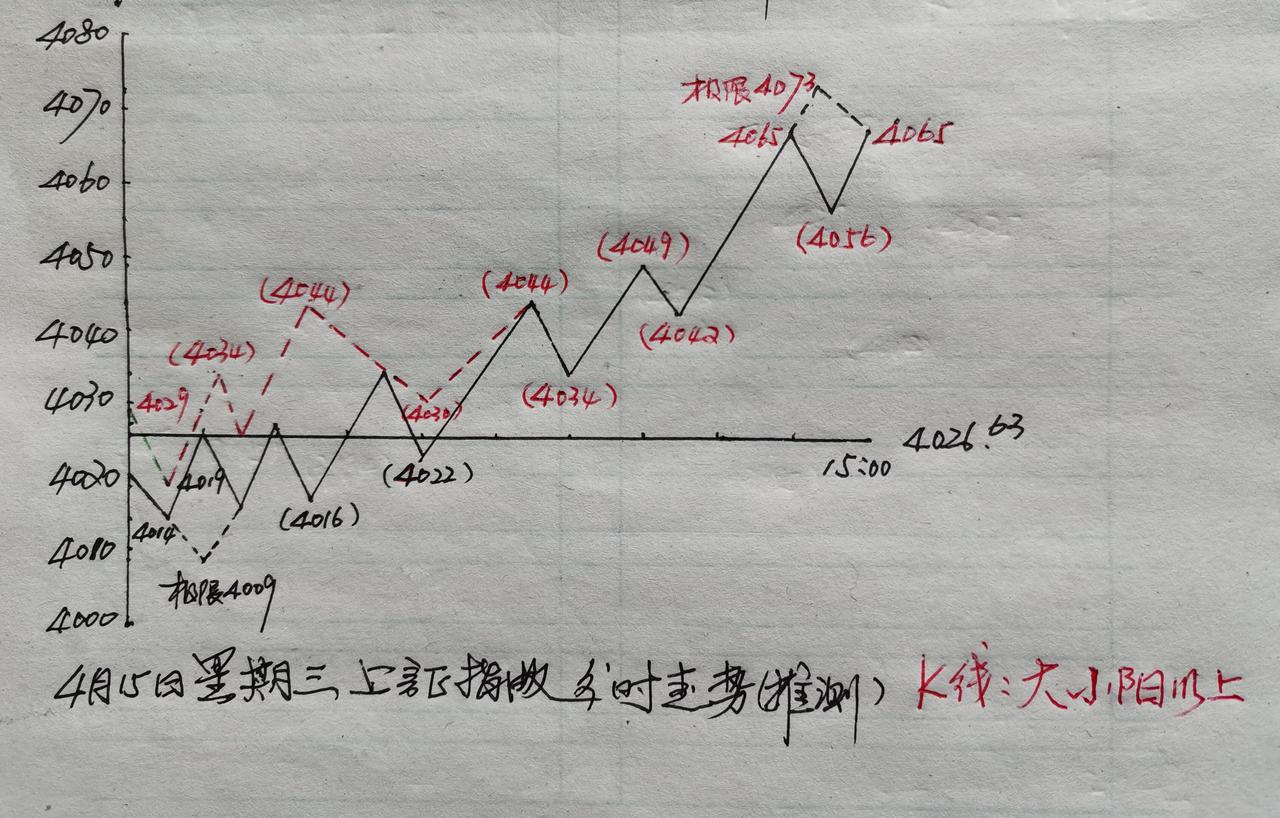 4080
极限4073
4070
4065
4065
4060
(4056)
4050
(4049)
(4044)
(4044)
4040
(4042)
(4034)
(4034)
4030
4029
(4030)
4026.63
15:00
4020
4019
(4022)
4014
(4016)
4010
极限4009
4000
4月15日星期三上証指数分时走势(推测) K线:大小阳以上